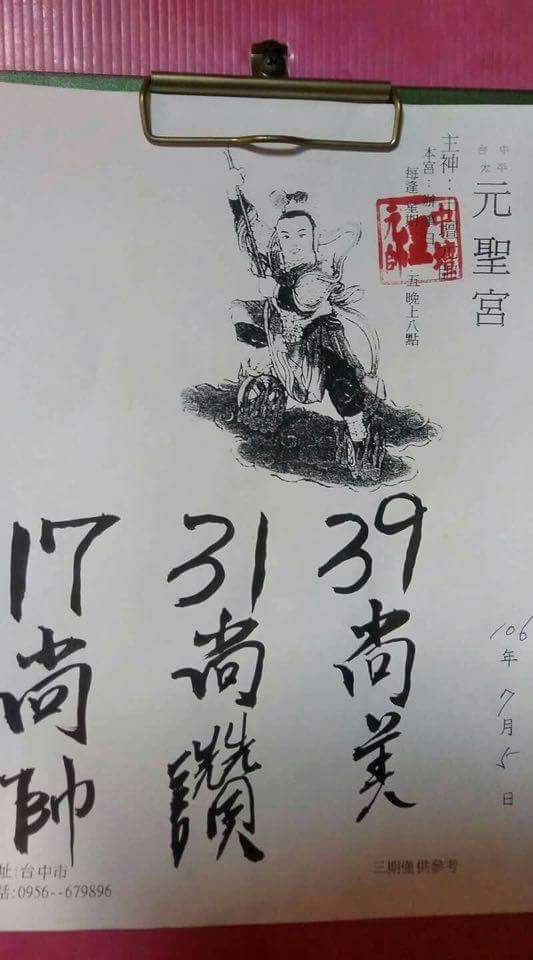 台中
太平
元聖宮
主神：中壇元帥
本宮：辦事日
每逢星期 五晚上八點
中壇
元帥
39尚美
31尚讚
17尚帥
106年7月5日
三期僅供參考
址:台中市
話:0956--679896